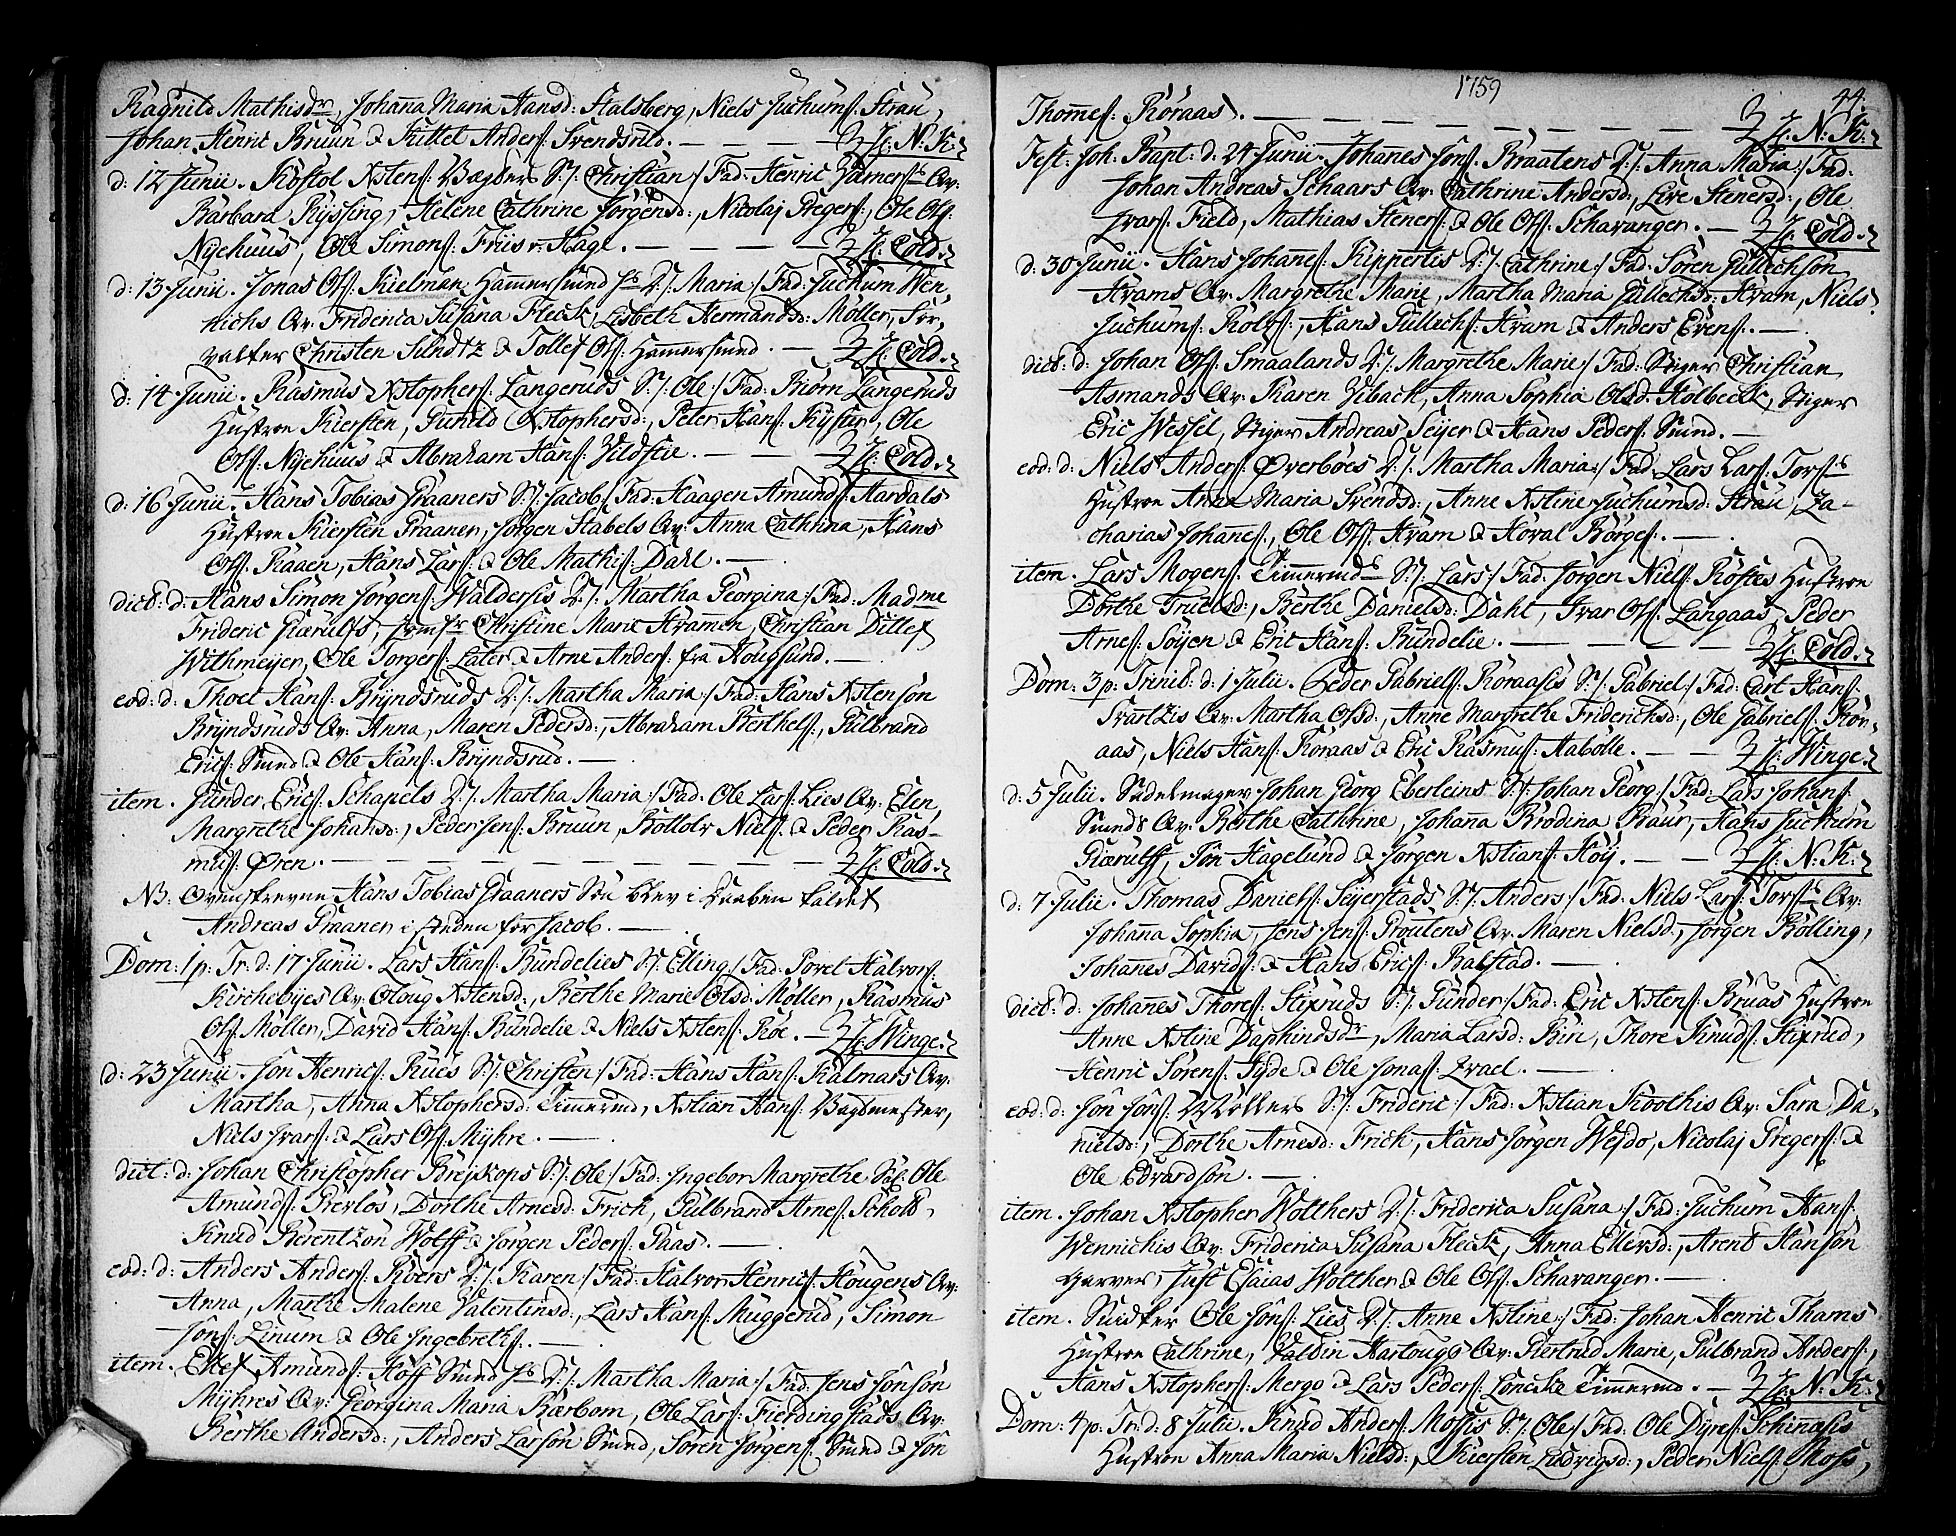 Ragnild Mathisdr, Johanna Maria Hansd: Stalsberg, Niels Juchums: Strau,
Johan Henric Bruun & Kittel Anders: Svendsrud. — — — — H: N: K:
d: 12 Junii. Kostol Xstens: Bægders S:/: Christian :/ Fad: Henric Qv:
Barbara Ryssing, Helene Cathrine Jørgensd:, Nicolaj Gregers:, Ole Ols:
Nyehuus, Ole Simons: Friis v: Hage. — — — — H: Cold.
d: 13 Junii. Jonas Ols: Kielman Hammersund D:/: Maria :/ Fad: Juchum Wen-
nichs Qv: Friderica Susana Fleck, Lisbeth Hermandsd: Møller, For-
valter Christen Sundtz & Tollef Ols: Hammersund. — H: Cold.
d: 14 Junii. Rasmus Xstophers: Langeruds S:/: Ole :/ Fad: Biørn Langeruds
Hustroe Kiersten, Gunild Xstophersd:, Peter Hans: Kyster, Ole
Ols: Nyehuus & Abraham Hans: Vildstie. — — — H: Cold.
d: 16 Junii. Hans Tobias Graaners S:/: Jacob :/ Fad: Haagen Amunds: Aardals
Hustroe Kiersten Graaner, Jørgen Stabels Qv: Anna Cathrina, Hans
Ols: Raaen, Hans Lars: & Ole Mathis: Dahl. —
dict: d: Hans Simon Jørgens: Waldersis D:/: Martha Georgina :/ Fad: Madme
Frideric Giærulfs, Jomfr Christine Marie Kramer, Christian Ditlef
Withmeyer, Ole Torgers: Later & Arne Anders: fra Hougsund. —
eod: d: Thoer Hans: Bryndsruds D:/: Martha Maria :/ Fad: Hans Xstensøn
Bryndsruds Qv: Anna, Maren Pedersd:, Abraham Berthels:, Gulbrand
Erics: Smed & Ole Hans: Bryndsrud. —
item. Gunder Erics: Schapels D:/: Martha Maria :/ Fad: Ole Lars: Lies Qv: Elen
Margrethe Johansd:, Peder Jens: Bruun, Niels: & Peder Ras-
mus: Øren. — — — — — — — H: Cold.
NB: Ovenskrevne Hans Tobias Graaners Søn blev i Daaben kaldet
Andreas Graaner i steden for Jacob. —
Dom: 1 p: Tr: d: 17 Junii. Lars Hans: Bundelies S:/: Elling :/ Fad: Povel Halvors:
Kirchebyes Qv: Oloug Xstensd:, Berthe Marie Olsd: Møller, Rasmus
Ols: Møller, David Hans: Bundelie & Niels Xstens: Roe. — H: Winge.
d: 23 Junii. Jon Henrics: Rues S:/: Christen :/ Fad: Hans Hans: Kalmars Qv:
Martha, Anna Xstophersd: Timermd, Xstian Hans: Vagtmester,
Niels Ivars: & Lars Ols: Myhre. —
dict: d: Johan Christopher Brejskops S:/: Ole :/ Fad: Ingebor Margrethe Sal: Ole
Amunds: Grevløs, Dorthe Arnesd: Frich, Gulbrand Arnes: Schott,
Knud Berentzøn Wolff & Jørgen Peders: Paas. —
eod: d: Anders Anders: Roers D:/: Karen :/ Fad: Halvor Henrics: Hougens Qv:
Anna, Marthe Malene Valentinsd:, Lars Hans: Muggerud, Simon
Jons: Linum & Ole Ingebreths:. —
item. Ellef Amunds: Hoff Smed D:/: Martha Maria :/ Fad: Jens Jonsøn
Myhres Qv: Georgina Maria Barbom, Ole Lars: Fierdingstads Qv:
Berthe Andersd:, Anders Larsøn Smed, Søren Jørgens: Smed & Jon
1759
44.
Thomes: Røraas. — — — — — — — — H: N: K:
Fest: Joh: Bapt: d: 24 Junii. Johannes Jons: Braatens D:/: Anna Maria :/ Fad:
Johan Andreas Schaars Qv: Cathrine Andersd:, Live Stenersd:, Ole
Ivars: Field, Mathias Steners: & Ole Ols: Schavanger. — H: Cold.
d: 30 Junii. Hans Johans: Kippertis D:/: Cathrine :/ Fad: Søren Gullechsøn
Krams Qv: Margrethe Marie, Martha Maria Gullechsd: Kram, Niels
Juchums: Rolf:, Hans Gullechs: Kram & Anders Evens:. —
dict: d: Johan Ols: Smaalands D:/: Margrethe Marie :/ Fad: Stiger Christian
Asmands Qv: Karen Uback, Anna Sophia Olsd: Kolbeck, Stiger
Eric Wessel, Stiger Andreas Seyer & Hans Peders: Smed. —
eod: d: Niels Anders: Øverbøes D:/: Martha Maria :/ Fad: Lars Lars: Torss
Hustroe Anna Maria Svendsd:, Anne Xstine Juchumsd: Strau, Za-
charias Johans:, Ole Ols: Kram & Horval Børges:. —
item. Lars Mogens: Timermds S:/: Lars :/ Fad: Jørgen Niels: Røstes Hustroe
Dorthe Truelsd:, Berthe Danielsd: Dahl, Ivar Ols: Langaas, Peder
Arnes: Søyen & Eric Hans: Bundelie. — — — — H: Cold.
Dom: 3 p: Trinit: d: 1 Julii. Peder Gabriels: Røraasis S:/: Gabriel :/ Fad: Carl Hans:
Svartzis Qv: Martha Olsd:, Anne Margrethe Friderichsd:, Ole Gabriels: Rør-
aas, Niels Hans: Røraas & Eric Rasmus: Aabolle. — — H: Winge.
d: 5 Julii. Sadelmager Johan Georg Eberleins S:/: Johan Georg :/ Fad: Lars Johans:
Smeds Qv: Berthe Cathrine, Johanna Brodina Graur, Hans Juchum
Giærulff, Jon Hagelund & Jørgen Xstians: Høy. — — H: N: K:
d: 7 Julii. Thomas Daniels: Seyerstads S:/: Anders :/ Fad: Niels Lars: Torss Qv:
Johana Sophia, Jens Jens: Proutens Qv: Maren Nielsd:, Jørgen Bølling,
Johannes Davids: & Hans Erics: Balstad. —
dict: d: Johannes Thores: Stixruds S:/: Gunder :/ Fad: Eric Xstens: Bruas Hustroe
Anne Xstine Daskindsdr, Maria Larsd: Biri, Thore Knuds: Stixrud,
Henric Sørens: Gyde & Ole Jonas: Israel. —
eod: d: Jon Jons: Wollers S:/: Frideric :/ Fad: Xstian Koothis Qv: Sara Da-
nielsd:, Dorthe Arnesd: Frich, Hans Jørgen Wejdo, Nicolaj Gregers: &
Ole Edvardsøn. —
item. Johan Xstopher Wolthers D:/: Friderica Susana :/ Fad: Juchum Hans:
Wennichis Qv: Friderica Susana Fleck, Anna Ellevsd:, Arent Hansøn
Garver, Just Esaias Wolther & Ole Ols: Schavanger. —
item. Snidker Ole Jons: Lies D:/: Anne Xstine :/ Fad: Johan Henric Thams
Hustroe Cathrine, Valdin Hartougs Qv: Giertrud Marie, Gulbrand Anders:,
Hans Xstophers: Mergo & Lars Peders: Loneke Timermd. — H: N: K:
Dom: 4 p: Tr: d: 8 Julii. Knud Anders: Mossis S:/: Ole :/ Fad: Ole Dyres: Schinnasis
Hustroe Anna Maria Nielsd:, Kiersten Ludvigsd:, Peder Niels: Moss,